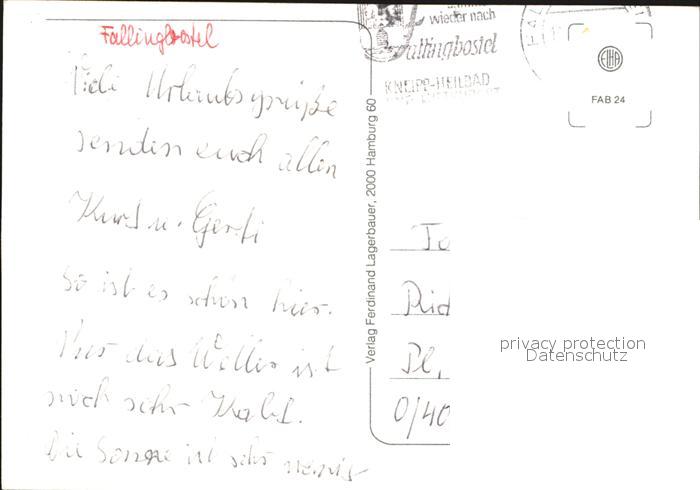 Fallingbostel
Viele Urlaubsgrüße
senden euch allen
Kurt u. Gerti
So ist es schön hier.
Nur das Wetter ist
noch sehr Kalt.
Die Sonne ist sehr wenig
Verlag Ferdinand Lagerbauer, 2000 Hamburg 60
wieder nach
Fallingbostel
KNEIPP-HEILBAD
FAB 24
To
Pl,
0/40
privacy protection
Datenschutz